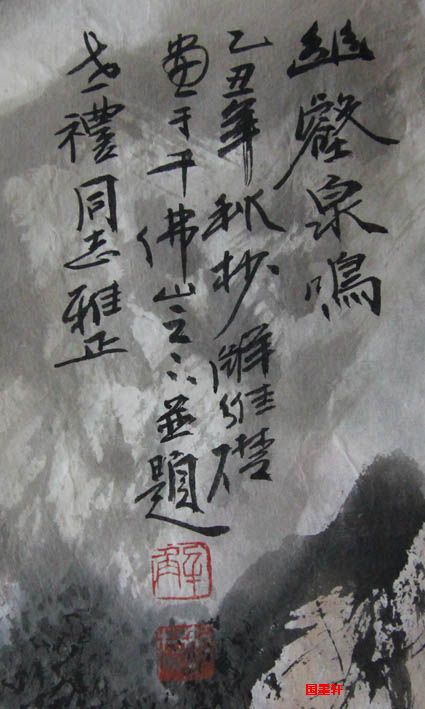 幽壑泉鳴
乙丑年秋杪解維礎
畫于千佛山之下並題
禮同志雅正
国墨轩